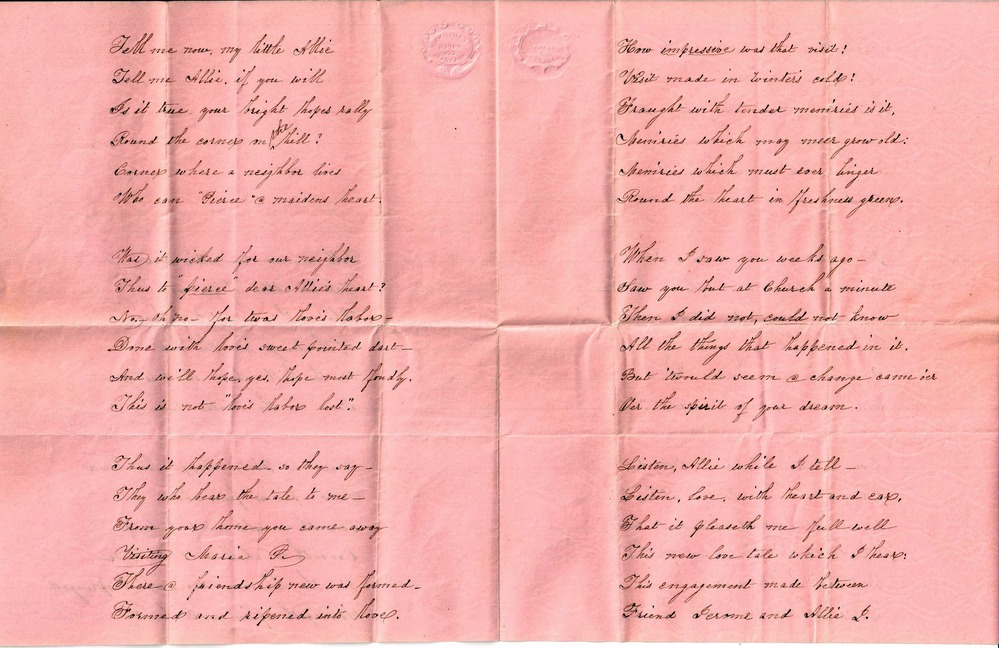 Tell me now, my little Allie
Tell me Allie, if you will
Is it true, your bright hopes rally
Round the corner on the hill?
Corner where a neighbor lives
Who can "Pierce" a maidens heart.
Was it wicked for our neighbor
Thus to "pierce" dear Allie's heart?
No, oh no - for twas love's labor -
Done with love's sweet pointed dart -
And we'll hope, yes, hope most fondly.
This is not "love's labor lost".
Thus it happened - so they say -
They who bear the tale to me -
From your home you came away
Visiting Maria P.
There a friendship new was formed -
Formed and ripened into love.
How impressive was that visit!
Visit made in winter's cold!
Fraught with tender mem'ries is it,
Mem'ries which may neer grow old:
Mem'ries which must ever linger
Round the heart in freshness green.
When I saw you weeks ago -
Saw you but at Church a minute
Then I did not, could not know
All the things that happened in it.
But 'twould seem a change came o'er
Oer the spirit of your dream.
Listen, Allie while I tell -
Listen, love, with heart and ear,
That it pleaseth me full well
This new love tale which I hear:
This engagement made between
Friend Jerome and Allie J.